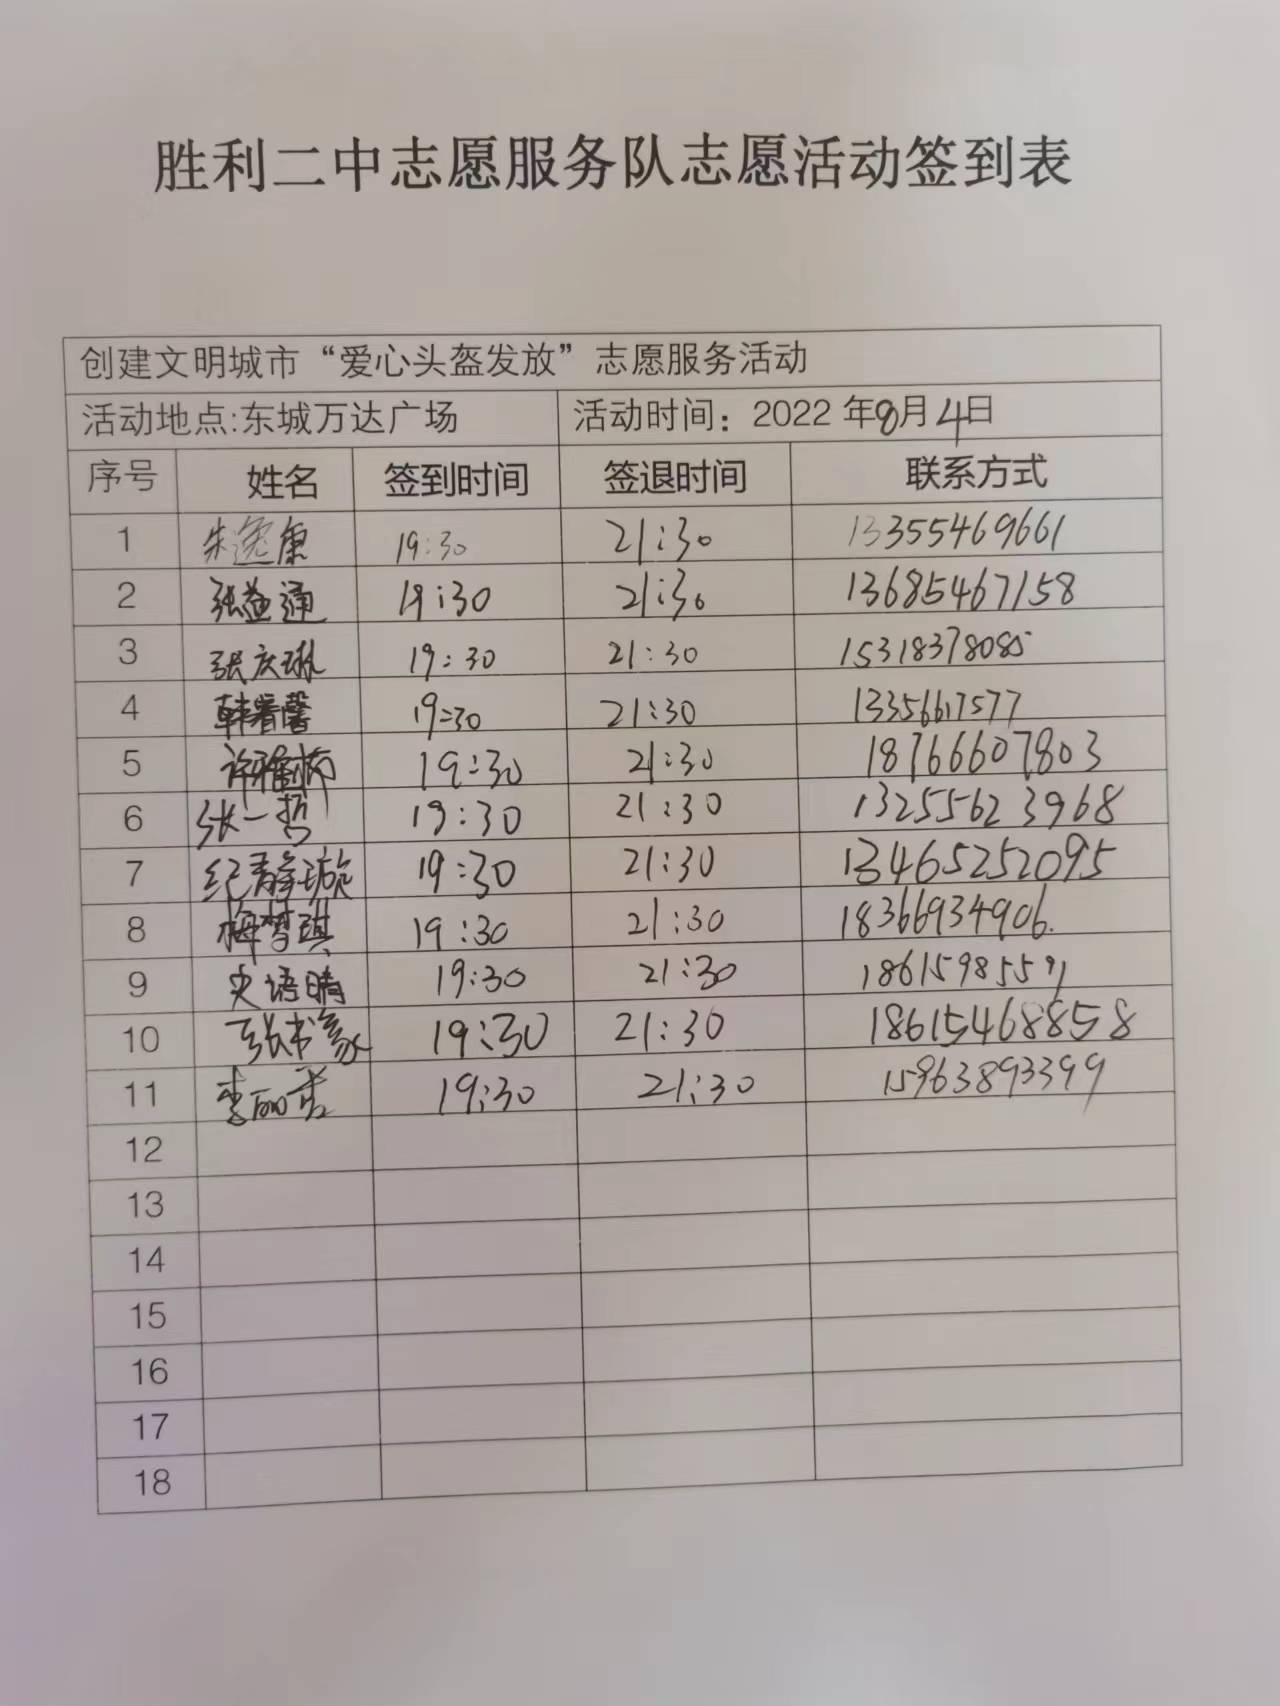 胜利二中志愿服务队志愿活动签到表
创建文明城市“爱心头盔发放”志愿服务活动
活动地点:东城万达广场 活动时间：2022年8月4日
序号 姓名 签到时间 签退时间 联系方式
1 朱逸康 19:30 21:30 13355469661
2 张益通 19:30 21:30 13685467158
3 张庆琳 19:30 21:30 15318378085
4 韩馨 19:30 21:30 13356617577
5 许雅楠 19:30 21:30 18766607803
6 张一哲 19:30 21:30 13255623968
7 纪静璇 19:30 21:30 13465252095
8 梅梦琪 19:30 21:30 18366934906.
9 史语晴 19:30 21:30 18615985591
10 张书豪 19:30 21:30 18615468858
11 李丽 19:30 21:30 15963893399
12
13
14
15
16
17
18